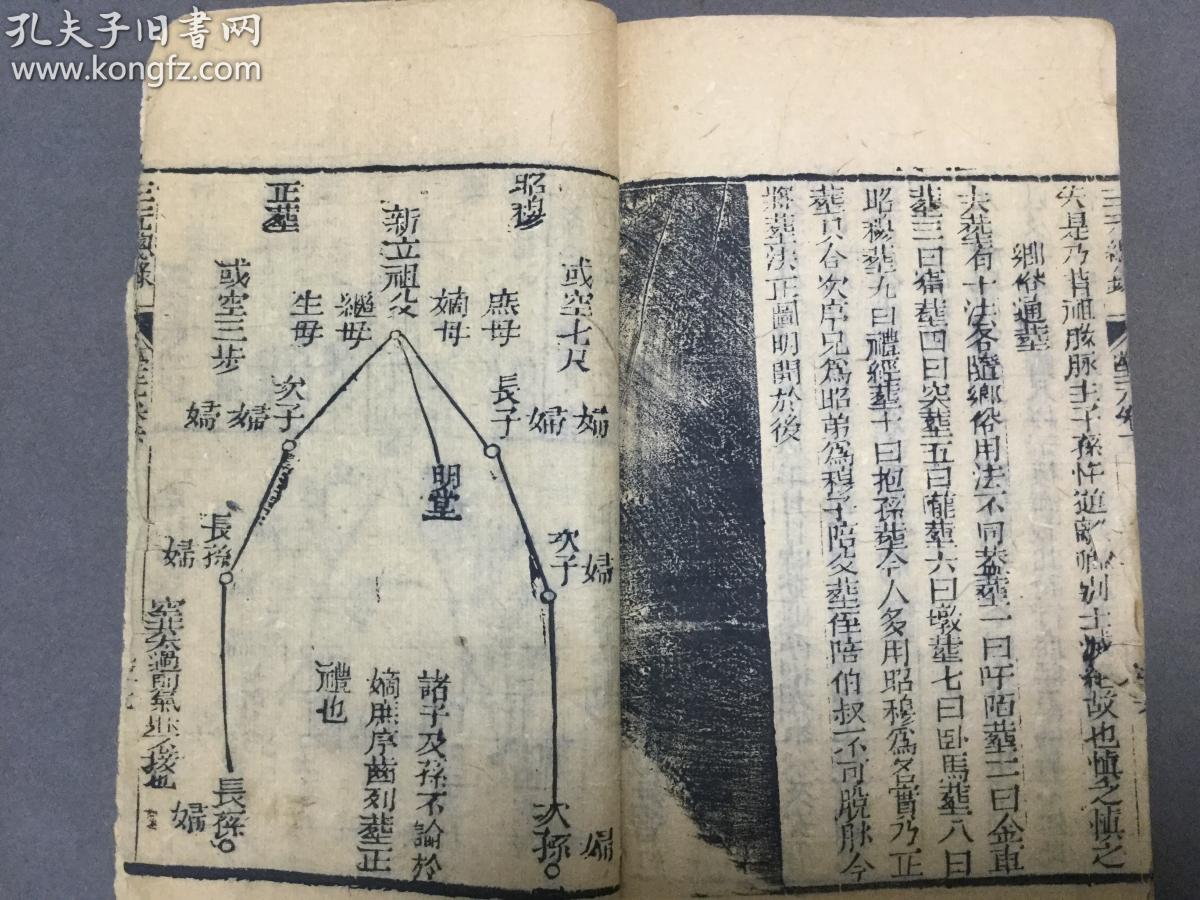 孔夫子旧书网
www.kongfz.com
失是乃皆通脉脉主子孫忤逆離鄉別土滅絕故也慎之慎之
鄉俗通塟
夫塟有十法各隨鄉俗用法不同葢塟一曰吁陌塟二曰金車
塟三曰猪塟四曰突塟五曰隴塟六曰墩塟七曰卧馬塟八曰
昭穆塟九曰禮經塟十曰抱孫塟今人多用昭穆爲名實乃正
塟只合次序兄爲昭弟爲穆子陪父塟侄陪伯叔不可脫脉今
將塟法正圖明開於後
昭穆
正塟
或空七尺
庶母
嫡母
新立祖父
繼母
生母
或空三步
長子
婦
婦
次子
婦
婦
明堂
次子
婦
長孫
婦
諸子及孫不論於
嫡庶序齒列塟正
禮也
次孫
婦
長孫
婦